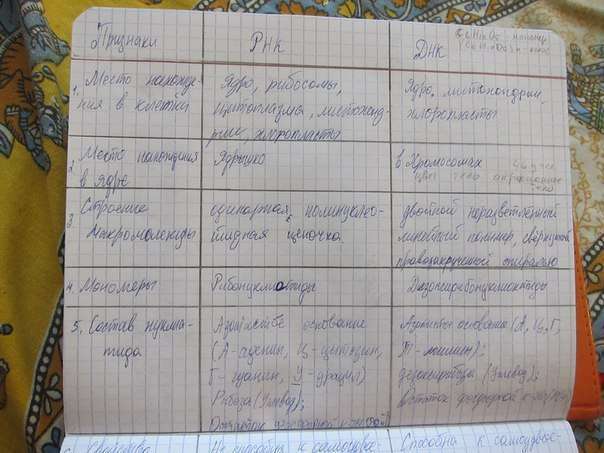 Признаки
РНК
ДНК
1. Место нахожде-
ния в клетки
Ядро, рибосомы,
цитоплазма, митохонд-
рии, хлоропласты
Ядро, митохондрии,
хлоропласты
2. Место нахождения
в ядре
Ядрышко
в Хромосомах
3. Строение
макромолекулы
одинарная полинуклео-
тидная цепочка.
двойной неразветвленный
линейный полимер, свернутый
правозакрученной спиралью
4. Мономеры
Рибонуклеотиды
Дезоксирибонуклеотиды
5. Состав нуклео-
тида
Азотистое основание
(А-аденин, Ц-цитозин,
Г-гуанин, У-урацил)
Рибоза (Углевод);
Остаток фосфорной
Азотистые основания (А, Ц, Г,
Т-тимин);
дезоксирибоза (Углевод);
Остаток фосфорной
Свойства
Не способна к самоудво-
Способна к самоудвое-